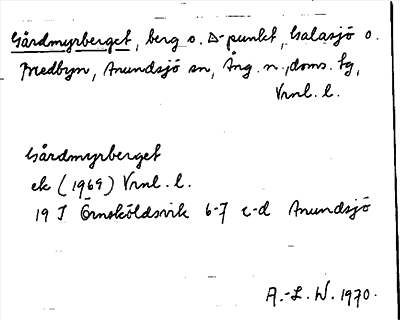 Gårdmyrberget, berg o. △-punkt, Galasjö o.
Predbyn, Anundsjö sn, Ång. n., doms. tg,
Vrnl. l.
Gårdmyrberget
ek (1969) Vrnl. l.
19 J Örnsköldsvik 6-7 c-d Anundsjö
A.-L. W. 1970.